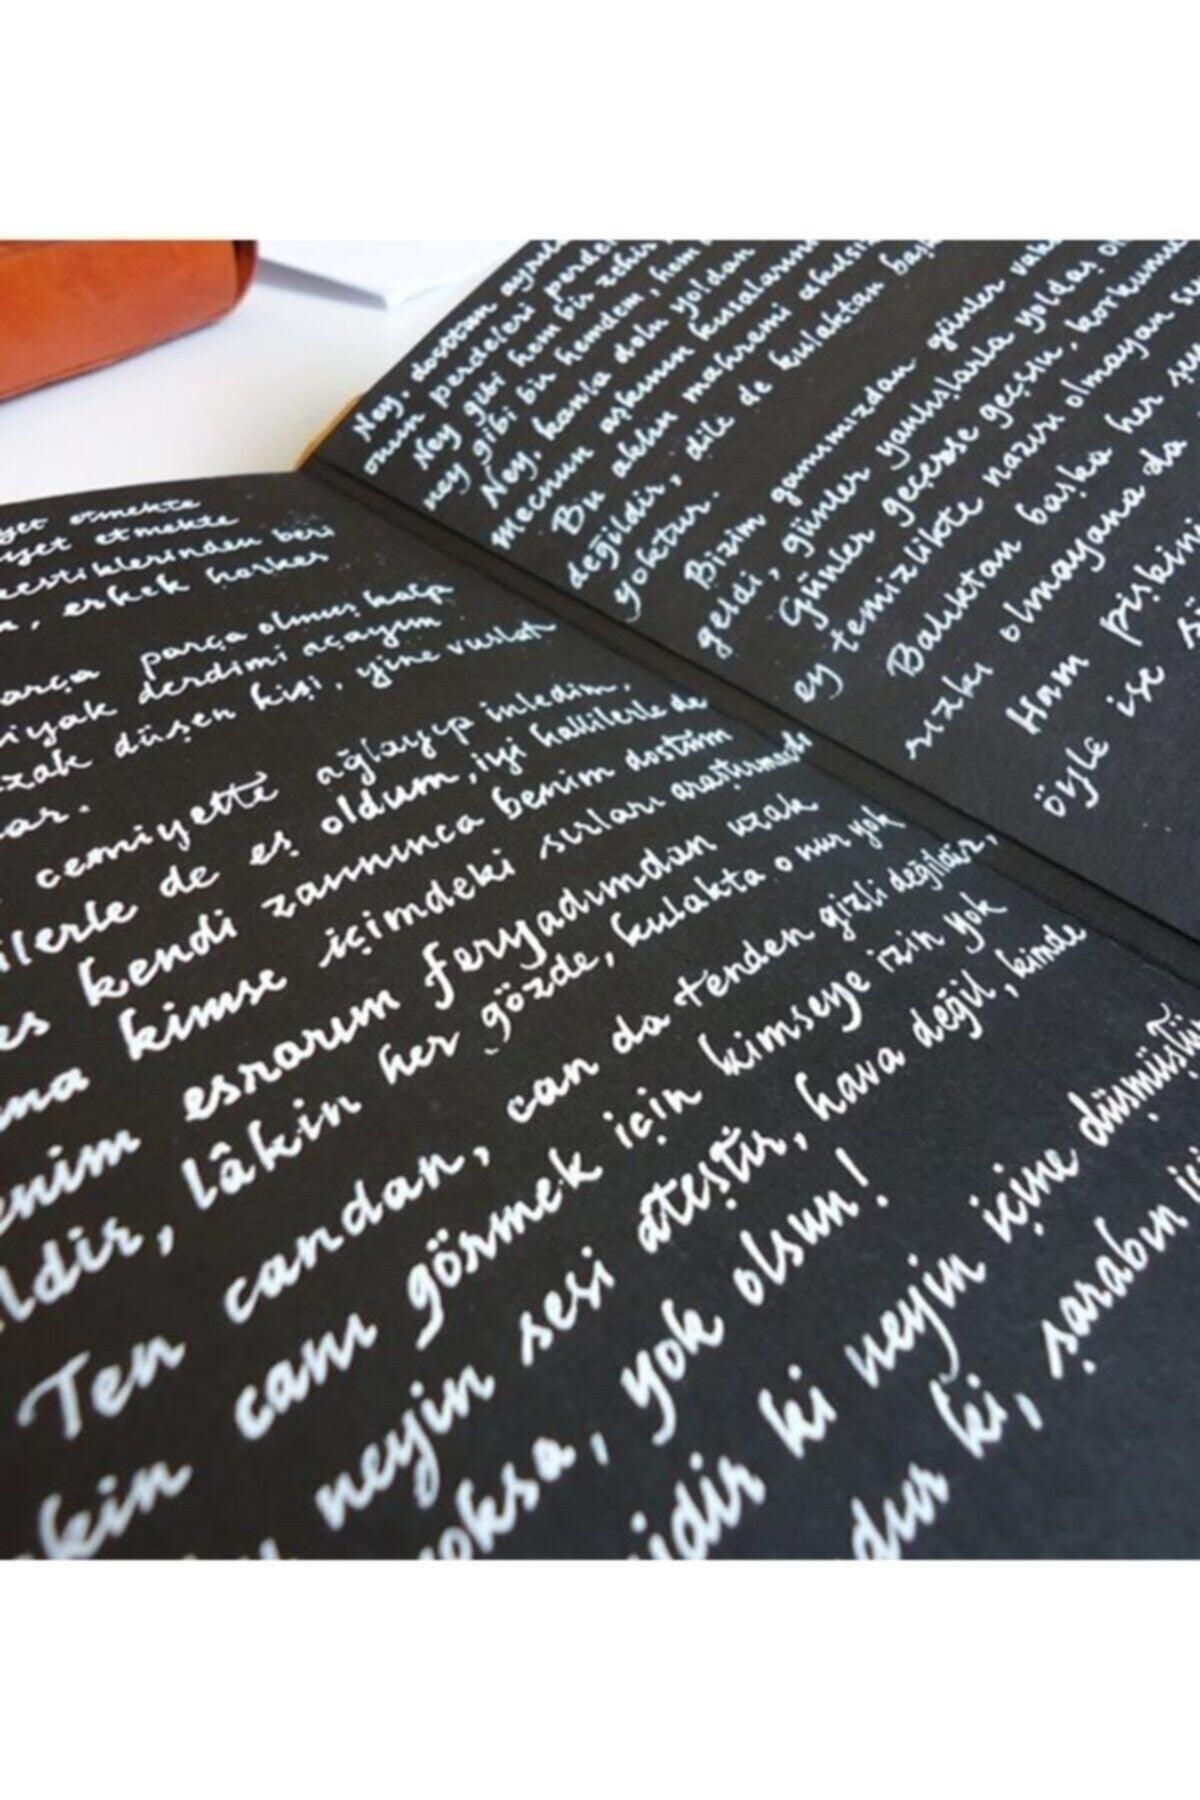 etmekte
etmekte
kestiklerinden beri
erkek herkes
parça olmuş kalp
derdimi açayım
düşen kişi, yine vuslat
cemiyette ağlayıp inledim,
de eş oldum, iyi hallilerle de
kendi zannınca benim dostum
kimse içimdeki sırları araştırmadı
esrarım feryadımdan uzak
lâkin her gözde, kulakta o nur yok
Ten candan, can da tenden gizli değildir,
canı görmek için kimseye izin yok
neyin sesi ateştir, hava değil, kimde
yok olsun!
ki neyin içine düşmüştü
ki, şarabın
Ney, dosttan
onun perdeleri
Ney gibi hem bir zehir
ney gibi bir hemdem, hem
Ney, kanla dolu yoldan
mecnun aşkının kıssalarını
Bu aklın mahremi akılsız
değildir, dile de kulaktan
yoktur.
Bizim gamımızdan günler
geldi, günler yanlışlarla yoldaş
Günler geçerse geçsin, korkumuz
ey temizlikte naziri olmayan
Balıktan başka her şey
rızkı olmayana da
Ham pişkinin
öyle ise